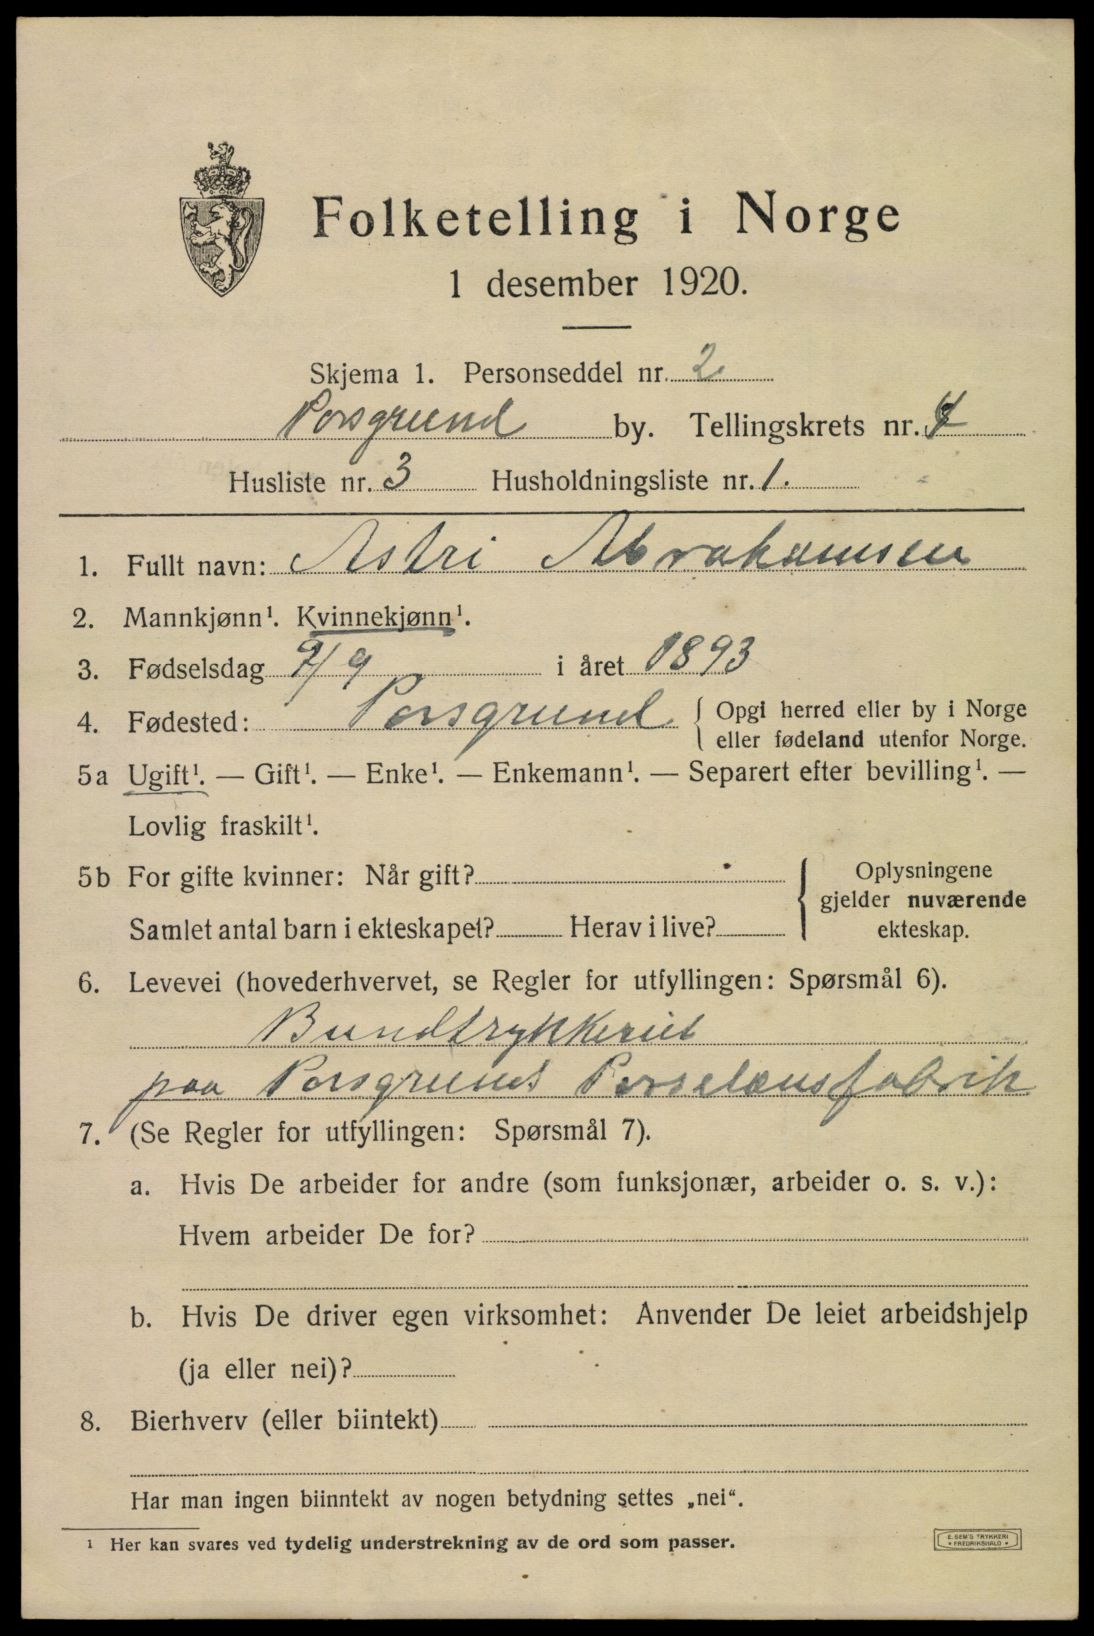 Folketelling i Norge
1 desember 1920.
Skjema 1. Personseddel nr. 2
Porsgrund by. Tellingskrets nr. 4
Husliste nr. 3 Husholdningsliste nr. 1.
1. Fullt navn: Astri Abrahamsen
2. Mannkjønn¹. Kvinnekjønn¹.
3. Fødselsdag 9/9 i året 1893
4. Fødested: Porsgrund { Opgi herred eller by i Norge
eller fødeland utenfor Norge.
5a Ugift¹. — Gift¹. — Enke¹. — Enkemann¹. — Separert efter bevilling¹. —
Lovlig fraskilt¹.
5b For gifte kvinner: Når gift?
Samlet antal barn i ekteskapet? Herav i live?
{ Oplysningene
gjelder nuværende
ekteskap.
6. Levevei (hovederhvervet, se Regler for utfyllingen: Spørsmål 6).
Bundtrykkeriet
paa Porsgrunds Porselænsfabrik
7. (Se Regler for utfyllingen: Spørsmål 7).
a. Hvis De arbeider for andre (som funksjonær, arbeider o. s. v.):
Hvem arbeider De for?
b. Hvis De driver egen virksomhet: Anvender De leiet arbeidshjelp
(ja eller nei)?
8. Bierhverv (eller biintekt)
Har man ingen biinntekt av nogen betydning settes „nei“.
¹ Her kan svares ved tydelig understrekning av de ord som passer.
E. SEM'S TRYKKERI
• FREDRIKSHALD •